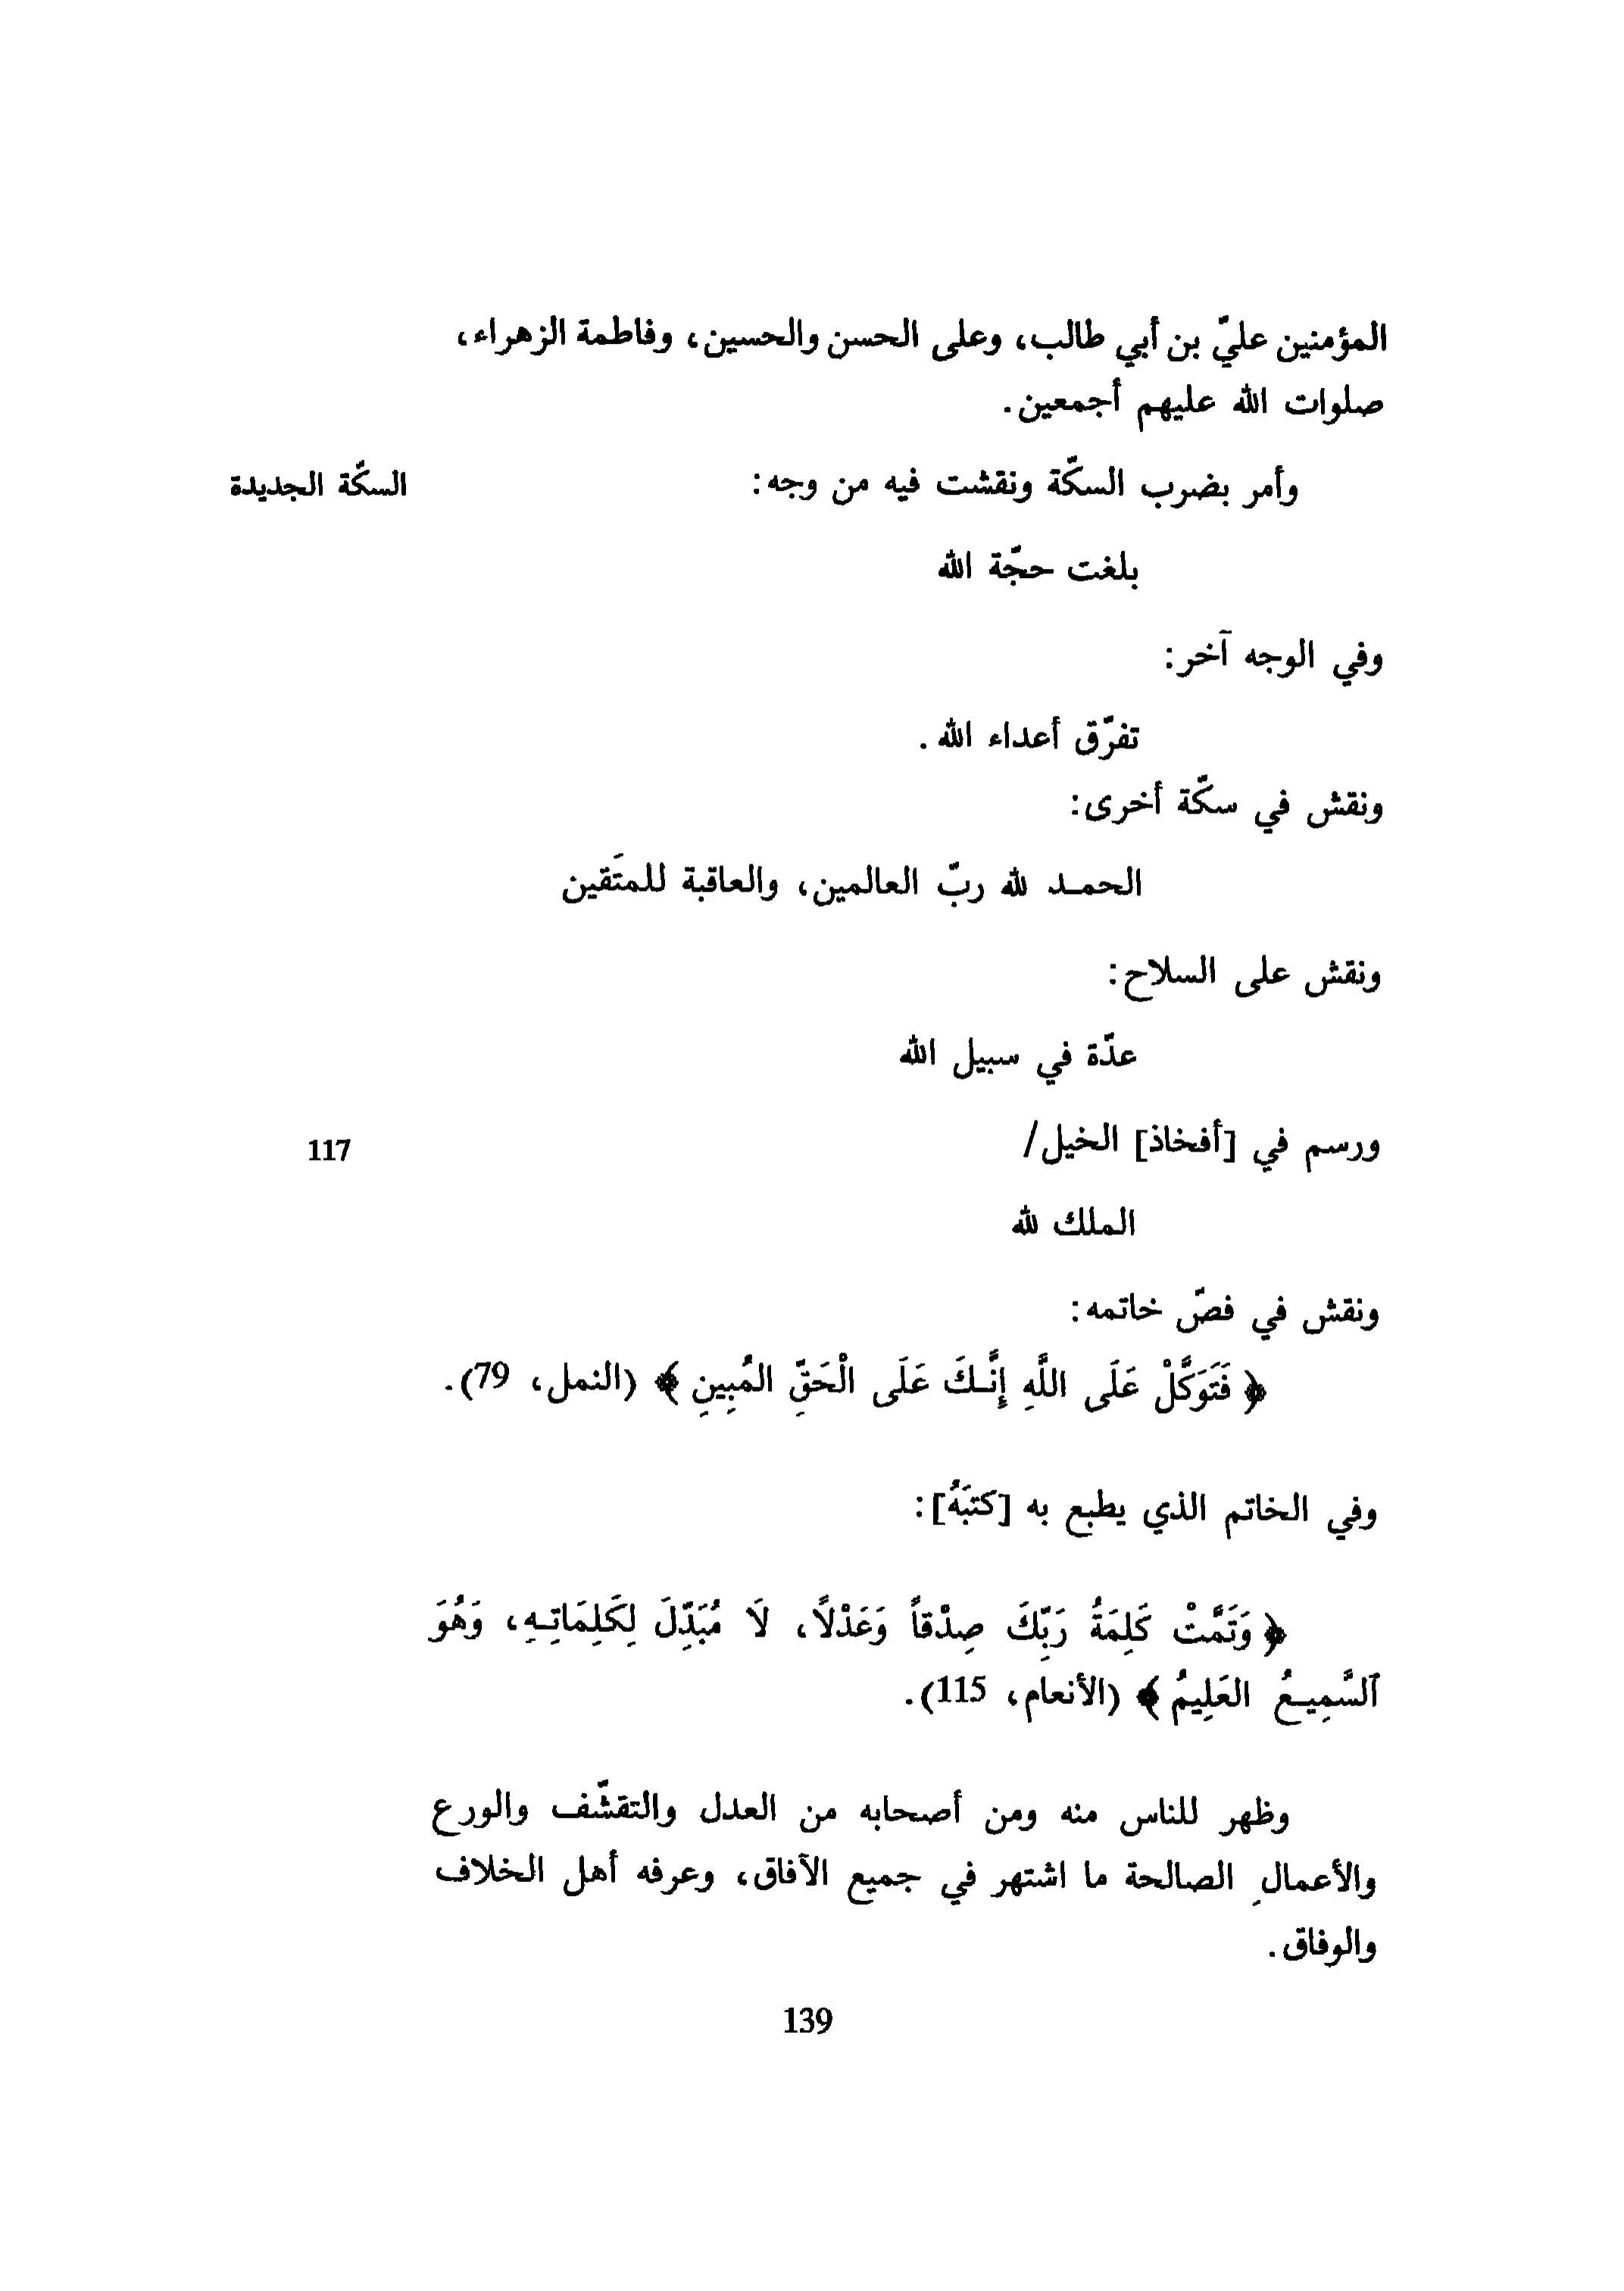 المؤمنين عليّ بن أبي طالب، وعلى الحسن والحسين، وفاطمة الزهراء،
صلوات الله عليهم أجمعين.
وأمر بضرب السكّة ونقشت فيه من وجه:
السكّة الجديدة
بلغت حجّة الله
وفي الوجه آخر:
تفرّق أعداء الله.
ونقش في سكّة أخرى:
الحمد لله ربّ العالمين، والعاقبة للمتَقين
ونقش على السلاح:
عدّة في سبيل الله
ورسم في [أفخاذ] الخيل/
117
الملك لله
ونقش في فصّ خاتمه:
﴿ فَتَوَكَّلْ عَلَى اللَّهِ إِنَّكَ عَلَى الْحَقِّ المُبِينِ ﴾ (النمل، 79).
وفي الخاتم الذي يطبع به [كتبَهُ]:
﴿ وَتَمَّتْ كَلِمَةُ رَبِّكَ صِدْقاً وَعَدْلاً، لَا مُبَدِّلَ لِكَلِمَاتِهِ، وَهُوَ
ٱلسَّمِيعُ العَلِيمُ ﴾ (الأنعام، 115).
وظهر للناس منه ومن أصحابه من العدل والتقشّف والورع
والأعمالِ الصالحة ما اشتهر في جميع الآفاق، وعرفه أهل الخلاف
والوفاق.
139